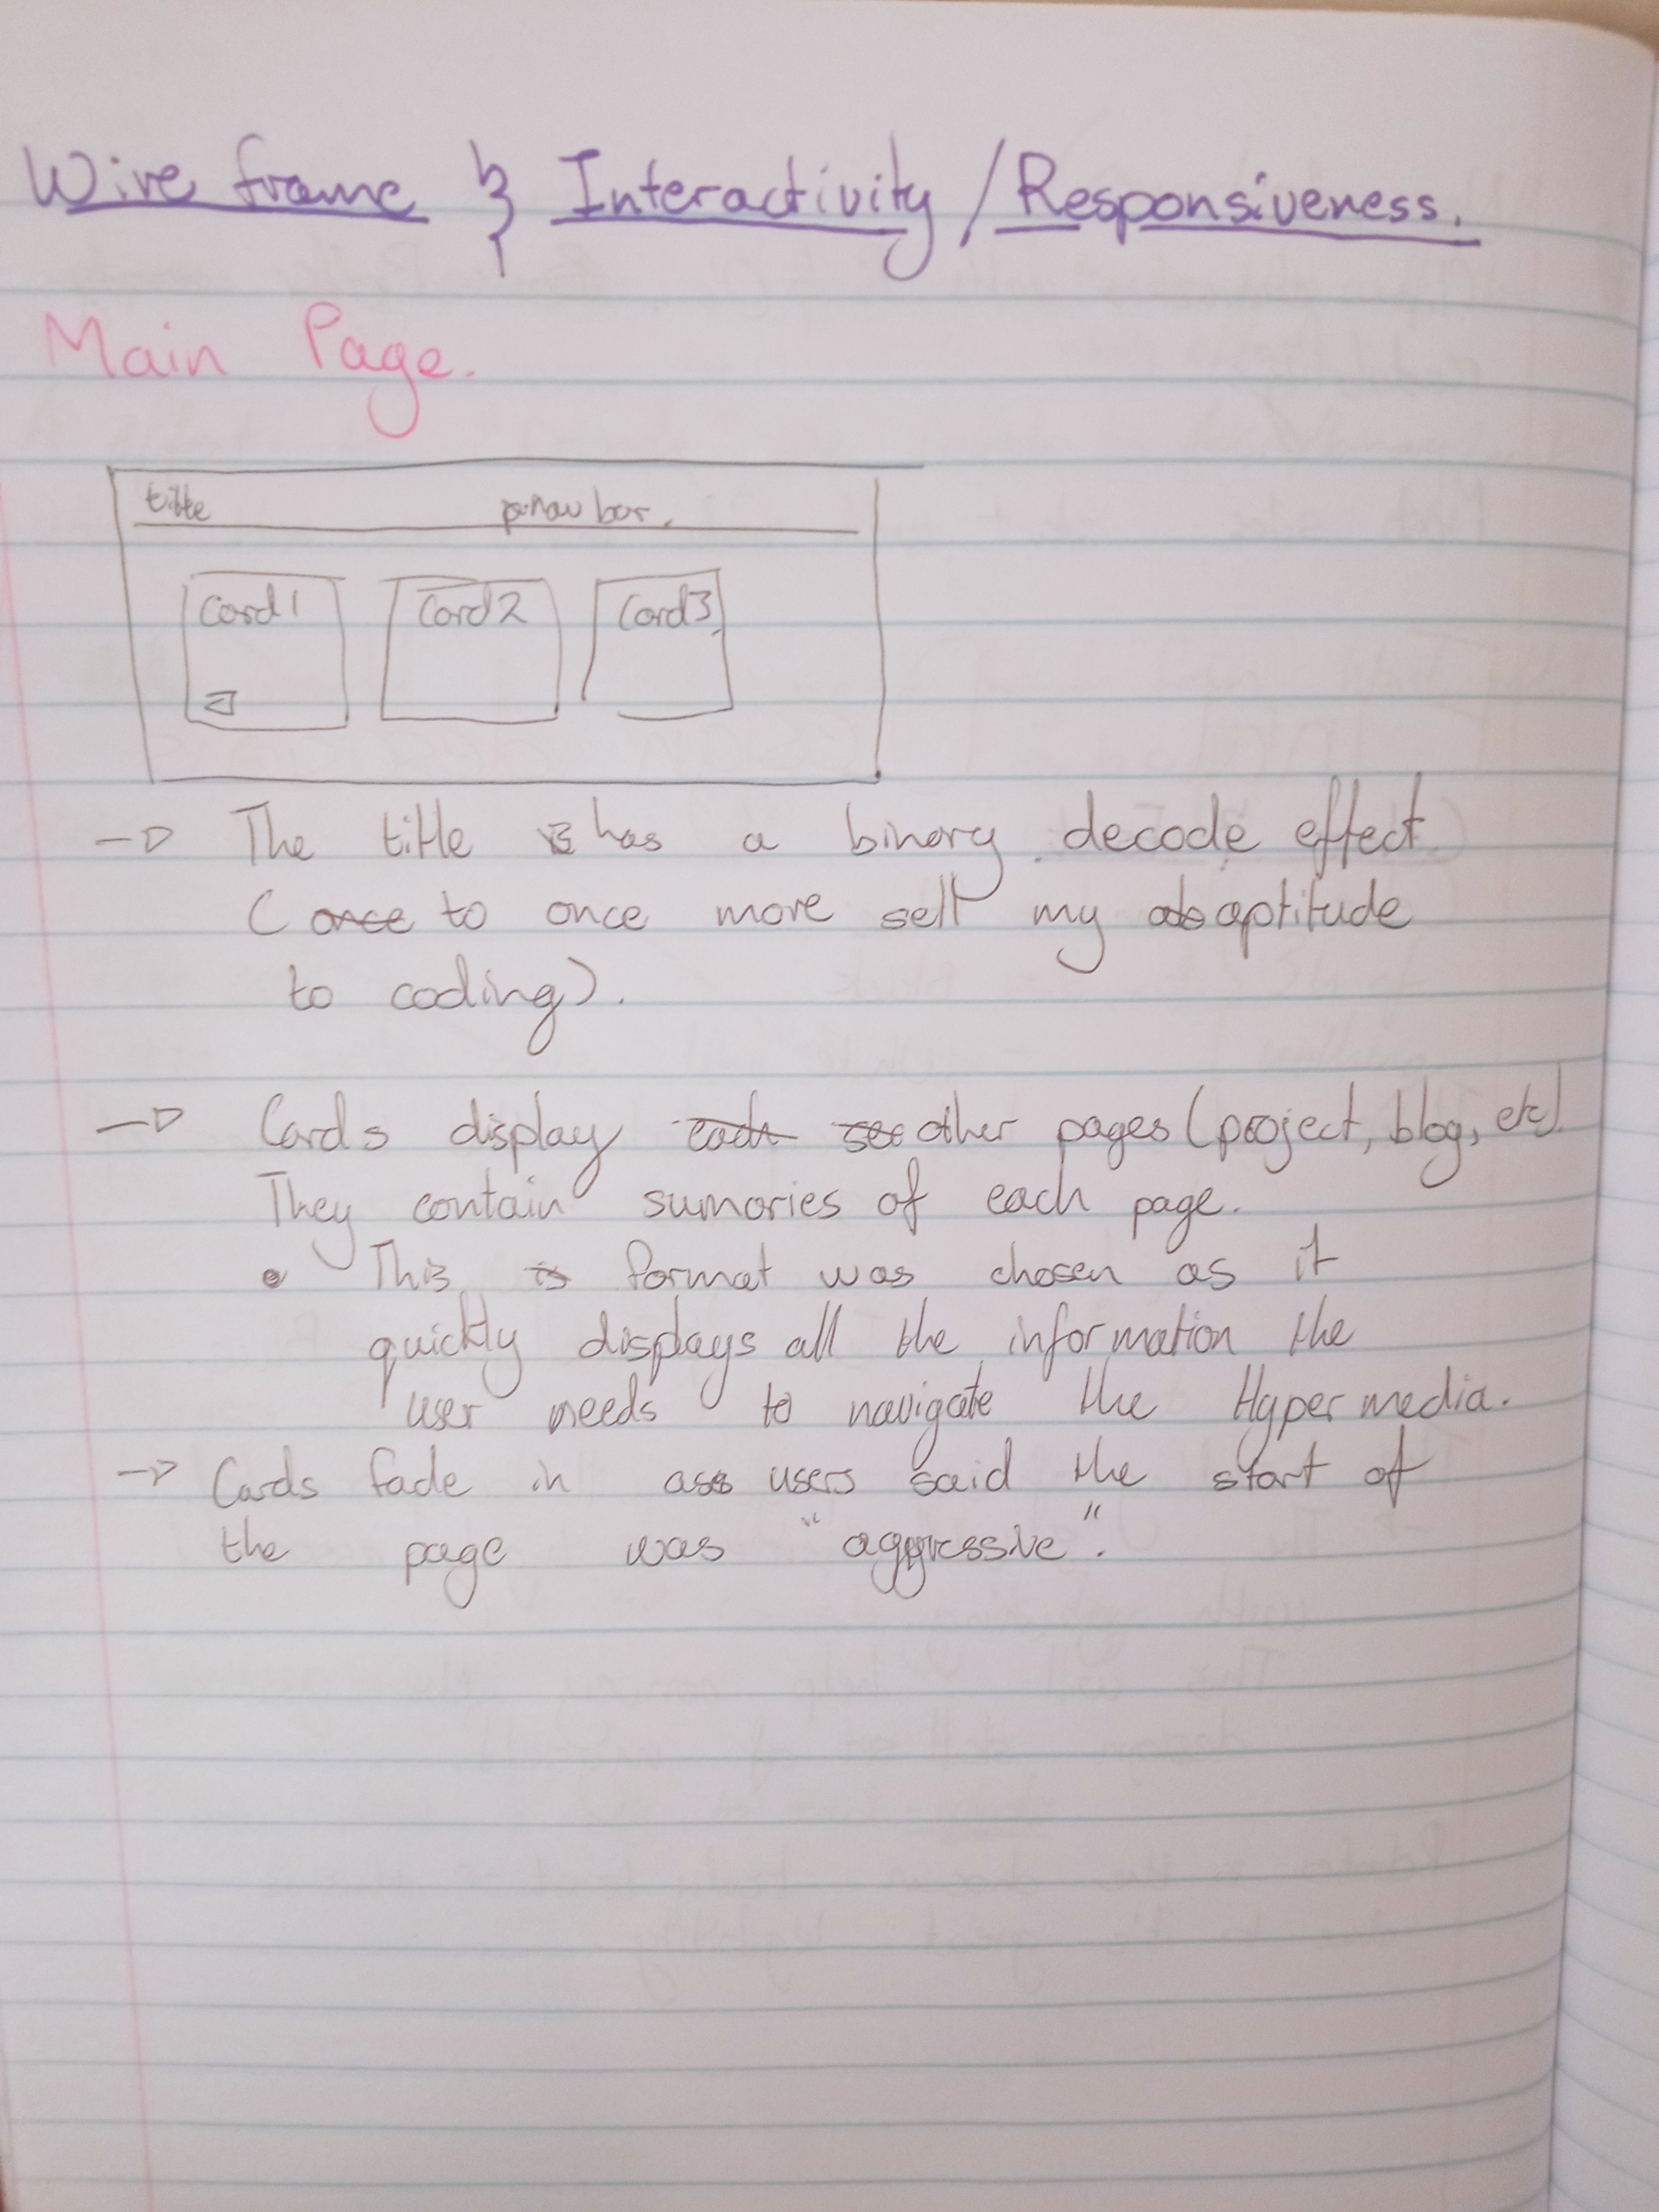 Wire frame & Interactivity/Responsiveness.
Main Page.
title nav bar.
Card1 Card2 Card3
→ The title has a binary decode effect
(once to once more sell my aptitude
to coding).
→ Cards display each other pages (project, blog, etc).
They contain sumaries of each page.
• This is format was chosen as it
quickly displays all the information the
user needs to navigate the Hypermedia.
→ Cards fade in as users said the start of
the page was "aggressive".